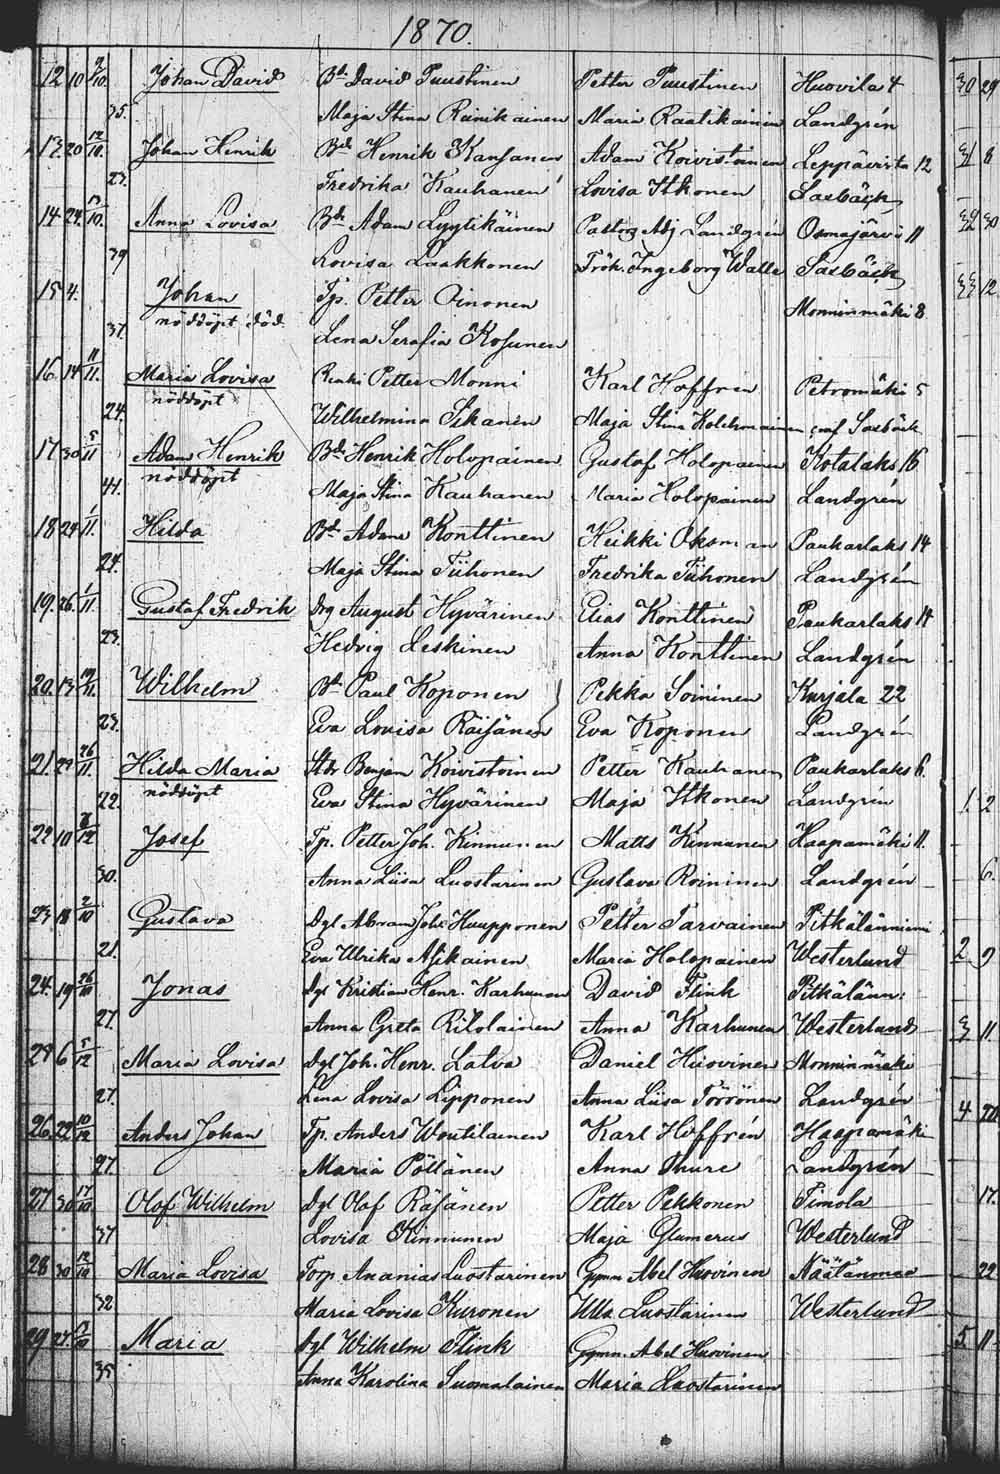 1870.
12 10 9/10. Johan David Bd. David Puustinen Petter Puustinen Huovila 4
35. Maja Stina Reinikainen Maria Raatikainen Landgrén
13. 20 12/10. Johan Henrik Bd. Henrik Kansanen Adam Koivistoinen Leppävirta 12
23. Fredrika Kauhanen Lovisa Itkonen Saxbäck
14. 24. /10. Anna Lovisa Bd. Adam Lyytikäinen Pastors Adj Landgrén Osmajärvi 11
39 Lovisa Laakkonen Frök. Ingeborg Walle Saxbäck
15 4. Johan Tp. Petter Oinonen Monninmäki 8
nöddöpt död.
37. Lena Serafia Kosunen
16. 14 11/11. Maria Lovisa Petter Monni Karl Hoffrén Petromäki 5
nöddöpt
24. Wilhelmina Sikanen Maja Stina Kolehmainen Saxbäck
17 30 5/11 Adam Henrik Bd. Henrik Holopainen Gustaf Holopainen Kotalaks 16
nöddöpt
41. Maja Stina Kauhanen Maria Holopainen Landgrén
18 24 1/11. Hilda Bd. Adam Konttinen Heikki Oksman Paukarlaks 14
24. Maja Stina Tiihonen Fredrika Tiihonen Landgrén
19. 26. 1/11. Gustaf Fredrik Drg August Hyvärinen Elias Konttinen Paukarlaks 14
23. Hedvig Leskinen Anna Konttinen Landgrén
20. 13 19/11. Wilhelm Bd. Paul Koponen Pekka Soininen Kurjala 22
23. Eva Lovisa Räisänen Eva Koponen Landgrén
21. 22 26/11. Hilda Maria Benjam Koivistoinen Petter Kauhanen Paukarlaks 6.
nöddöpt
22. Eva Stina Hyvärinen Maja Itkonen Landgrén
22 10 8/12 Josef Tp. Petter Joh. Kinnunen Matts Kinnunen Haapamäki 11.
30. Anna Liisa Luostarinen Gustava Roininen Landgrén
23 18 2/10 Gustava Dgl Abram Joh. Huupponen Petter Tarvainen Pitkälänniemi
21. Eva Ulrika Asikainen Maria Holopainen Westerlund
24. 19 26/10 Jonas Dgl Kristian Henr. Karhunen David Flink Pitkälänn:
27. Anna Greta Riholainen Anna Karhunen Westerlund
25 6 5/12 Maria Lovisa Dgl Joh. Henr. Latva Daniel Huovinen Monninmäki
27. Lena Lovisa Lipponen Anna Liisa Törrönen Landgrén
26. 22 10/12 Anders Johan Tp. Anders Woutilainen Karl Hoffrén Haapamäki
27. Maria Pöllänen Anna Thure Landgrén
27 30 17/10. Olof Wilhelm Dgl Olof Räsänen Petter Pekkonen Timola
37 Lovisa Kinnunen Maja Glumerus Westerlund
28 30 12/10 Maria Lovisa Torp. Ananias Luostarinen Gymn Abel Huovinen Näätänmaa
32 Maria Lovisa Kuronen Ulla Luostarinen Westerlund
29 27. /10 Maria Dgl Wilhelm Flink Gymn. Abel Huovinen
35. Anna Karolina Suomalainen Maria Luostarinen